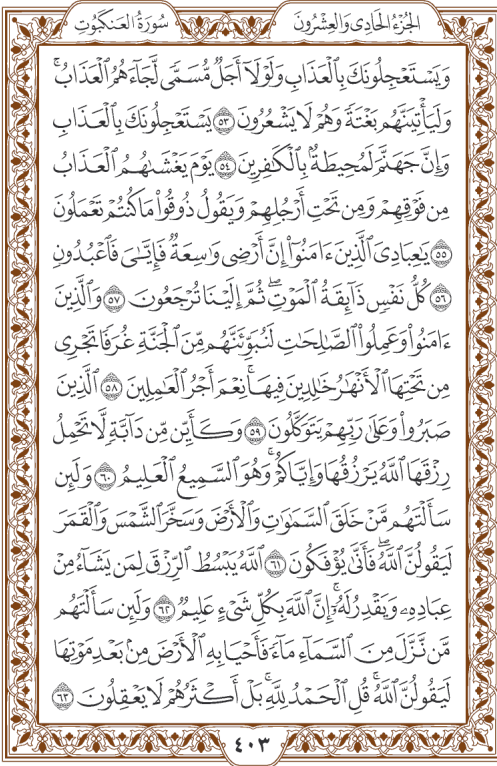 سُورَةُ العَنكَبُوتِ
الجُزْءُ الحَادِى وَالعِشْرُونَ
وَيَسْتَعْجِلُونَكَ بِٱلْعَذَابِ وَلَوْلَآ أَجَلٌ مُّسَمًّى لَّجَآءَهُمُ ٱلْعَذَابُۚ
وَلَيَأْتِيَنَّهُم بَغْتَةً وَهُمْ لَا يَشْعُرُونَ ٥٣ يَسْتَعْجِلُونَكَ بِٱلْعَذَابِ
وَإِنَّ جَهَنَّمَ لَمُحِيطَةٌۢ بِٱلْكَٰفِرِينَ ٥٤ يَوْمَ يَغْشَىٰهُمُ ٱلْعَذَابُ
مِن فَوْقِهِمْ وَمِن تَحْتِ أَرْجُلِهِمْ وَيَقُولُ ذُوقُوا۟ مَا كُنتُمْ تَعْمَلُونَ
٥٥ يَٰعِبَادِىَ ٱلَّذِينَ ءَامَنُوٓا۟ إِنَّ أَرْضِى وَٰسِعَةٌ فَإِيَّٰىَ فَٱعْبُدُونِ
٥٦ كُلُّ نَفْسٍ ذَآئِقَةُ ٱلْمَوْتِۖ ثُمَّ إِلَيْنَا تُرْجَعُونَ ٥٧ وَٱلَّذِينَ
ءَامَنُوا۟ وَعَمِلُوا۟ ٱلصَّٰلِحَٰتِ لَنُبَوِّئَنَّهُم مِّنَ ٱلْجَنَّةِ غُرَفًا تَجْرِى
مِن تَحْتِهَا ٱلْأَنْهَٰرُ خَٰلِدِينَ فِيهَاۚ نِعْمَ أَجْرُ ٱلْعَٰمِلِينَ ٥٨ ٱلَّذِينَ
صَبَرُوا۟ وَعَلَىٰ رَبِّهِمْ يَتَوَكَّلُونَ ٥٩ وَكَأَيِّن مِّن دَآبَّةٍ لَّا تَحْمِلُ
رِزْقَهَا ٱللَّهُ يَرْزُقُهَا وَإِيَّاكُمْۚ وَهُوَ ٱلسَّمِيعُ ٱلْعَلِيمُ ٦٠ وَلَئِن
سَأَلْتَهُم مَّنْ خَلَقَ ٱلسَّمَٰوَٰتِ وَٱلْأَرْضَ وَسَخَّرَ ٱلشَّمْسَ وَٱلْقَمَرَ
لَيَقُولُنَّ ٱللَّهُۖ فَأَنَّىٰ يُؤْفَكُونَ ٦١ ٱللَّهُ يَبْسُطُ ٱلرِّزْقَ لِمَن يَشَآءُ مِنْ
عِبَادِهِۦ وَيَقْدِرُ لَهُۥٓۚ إِنَّ ٱللَّهَ بِكُلِّ شَىْءٍ عَلِيمٌ ٦٢ وَلَئِن سَأَلْتَهُم
مَّن نَّزَّلَ مِنَ ٱلسَّمَآءِ مَآءً فَأَحْيَا بِهِ ٱلْأَرْضَ مِنۢ بَعْدِ مَوْتِهَا
لَيَقُولُنَّ ٱللَّهُۚ قُلِ ٱلْحَمْدُ لِلَّهِۚ بَلْ أَكْثَرُهُمْ لَا يَعْقِلُونَ ٦٣
٤٠٣